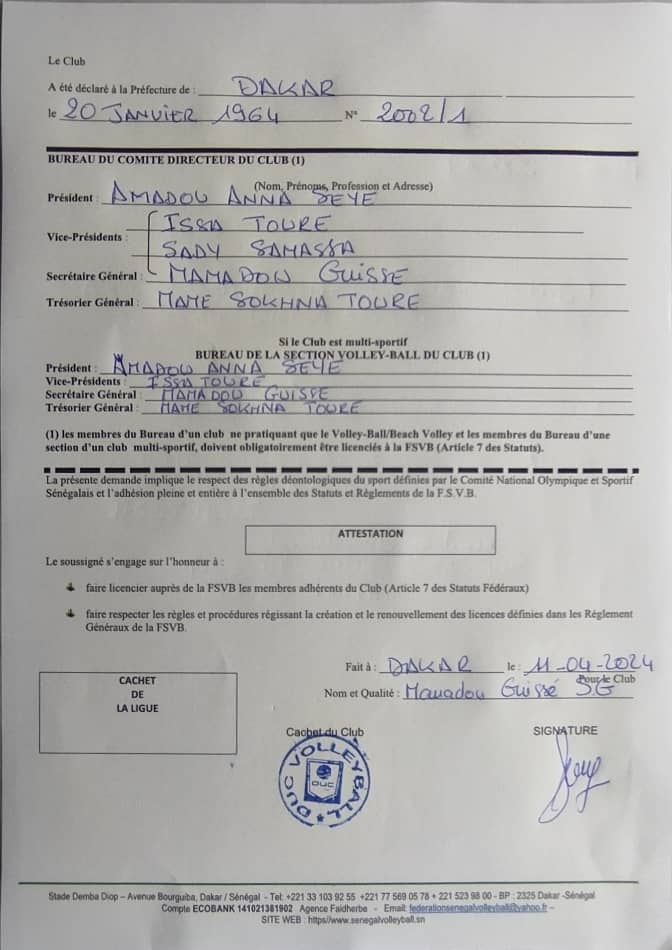 Le Club
A été déclaré à la Préfecture de : DAKAR
le 20 JANVIER 1964 N° 2002/1
BUREAU DU COMITE DIRECTEUR DU CLUB (1)
(Nom, Prénoms, Profession et Adresse)
Président : AMADOU ANNA SEYE
Vice-Présidents : ISSA TOURE
SADY SAMASSA
Secrétaire Général : MAMADOU GUISSE
Trésorier Général : MAME SOKHNA TOURE
Si le Club est multi-sportif
BUREAU DE LA SECTION VOLLEY-BALL DU CLUB (1)
Président : AMADOU ANNA SEYE
Vice-Présidents : ISSA TOURE
Secrétaire Général : MAMADOU GUISSE
Trésorier Général : MAME SOKHNA TOURE
(1) les membres du Bureau d'un club ne pratiquant que le Volley-Ball/Beach Volley et les membres du Bureau d'une
section d'un club multi-sportif, doivent obligatoirement être licenciés à la FSVB (Article 7 des Statuts).
La présente demande implique le respect des règles déontologiques du sport définies par le Comité National Olympique et Sportif
Sénégalais et l'adhésion pleine et entière à l'ensemble des Statuts et Règlements de la F.S.V.B.
ATTESTATION
Le soussigné s'engage sur l'honneur à :
faire licencier auprès de la FSVB les membres adhérents du Club (Article 7 des Statuts Fédéraux)
faire respecter les règles et procédures régissant la création et le renouvellement des licences définies dans les Règlement
Généraux de la FSVB.
Fait à : DAKAR le : 11-04-2024
Pour le Club
Nom et Qualité : Mamadou Guissé S.G
CACHET
DE
LA LIGUE
Cachet du Club
SIGNATURE
DUC VOLLEYBALL
DUC
Stade Demba Diop – Avenue Bourguiba, Dakar / Sénégal - Tel: +221 33 103 92 55 +221 77 569 05 78 + 221 523 98 00 - BP : 2325 Dakar -Sénégal
Compte ECOBANK 141021381902 Agence Faidherbe - Email: federationsenegalvolleyball@yahoo.fr –
SITE WEB : https//www.senegalvolleyball.sn